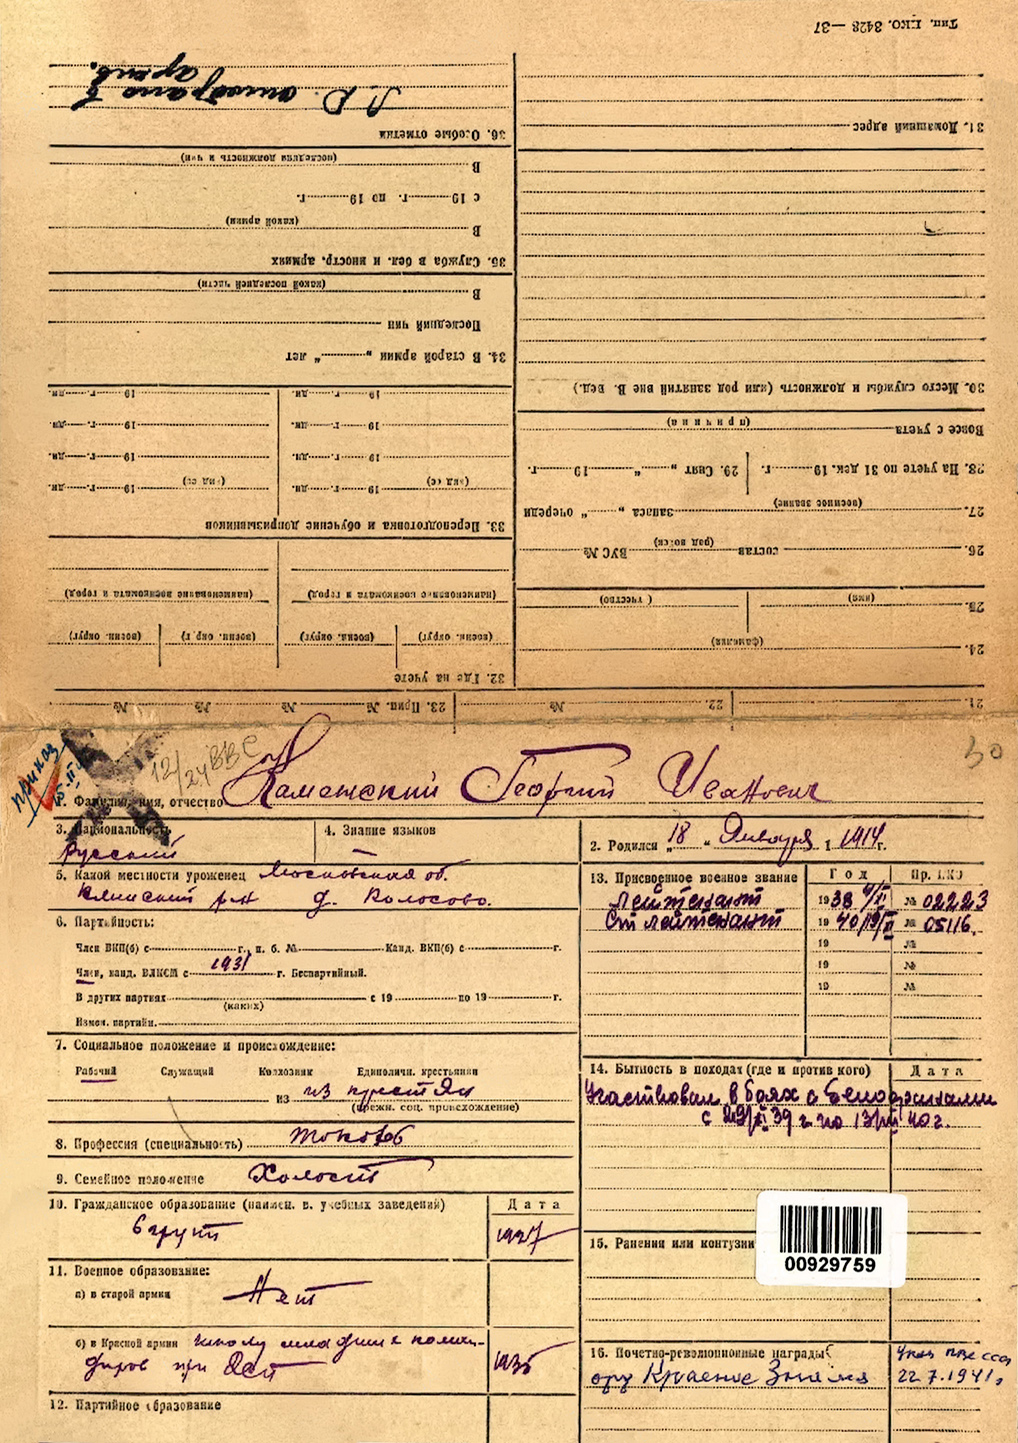 Тип. НКО. 3428 —37
31. Домашний адрес
30. Место службы и должность (или род занятий вне В. вед.)
Вовсе с учета
(причина)
28. На учете по 31 дек. 19 г. 29. Снят „ “ 19 г.
27. запаса „ “ очереди
(военное звание)
26. состав ВУС №
(род войск)
25.
(имя) (отчество)
24.
(фамилия)
21. 22. № 23. Прип. № № № №
36. Особые отметки
(последняя должность и чин)
В
с 19 г. по 19 г.
(какой армии)
В
35. Служба в бел. и иностр. армиях
(какой последней части)
В
Последний чин
34. В старой армии „ “ лет
19 г. дн. 19 г. дн.
19 г. дн. 19 г. дн.
19 г. дн. 19 г. дн.
19 г. дн. 19 г. дн.
(вид сб) (вид сб)
33. Переподготовка и обучение допризывников
(наименование военкомата и город) (наименование военкомата и город)
(военн. округ) (военн. округ) (военн. округ) (военн. округ)
32. Где на учете
приказ
12/24 ВВС
30
1. Фамилия, имя, отчество Каменский Георгий Иванович
3. Национальность
Русский
4. Знание языков
—
2. Родился „18“ Января 1914 г.
5. Какой местности уроженец Московская об.
Клинский р-н д. Колосово.
6. Партийность:
Член ВКП(б) с г., п. б. № Канд. ВКП(б) с г.
Член, канд. ВЛКСМ с 1931 г. Беспартийный.
В других партиях с 19 по 19 г.
(каких)
Измен. партийн.
7. Социальное положение и происхождение:
Рабочий Служащий Колхозник Единоличн. крестьянин
из крестьян
(прежн. соц. происхождение)
8. Профессия (специальность) токарь
9. Семейное положение Холост
10. Гражданское образование (наимен. в. учебных заведений) Дата
6 групп 1927
11. Военное образование:
а) в старой армии Нет
б) в Красной армии школу младших коман-
диров при 1935
12. Партийное образование
13. Присвоенное военное звание Год Пр. НКО
Лейтенант 1938 № 02223
Ст лейтенант 1940 19/XI № 05116.
19 №
19 №
19 №
14. Бытность в походах (где и против кого) Дата
Участвовал в боях с белофинами
с 29/XI 39 г. по 13/III 40 г.
15. Ранения или контузии
00929759
16. Почетно-революционные награды Указ ПВС СССР
орд Красное Знамя 22.7.1941г.